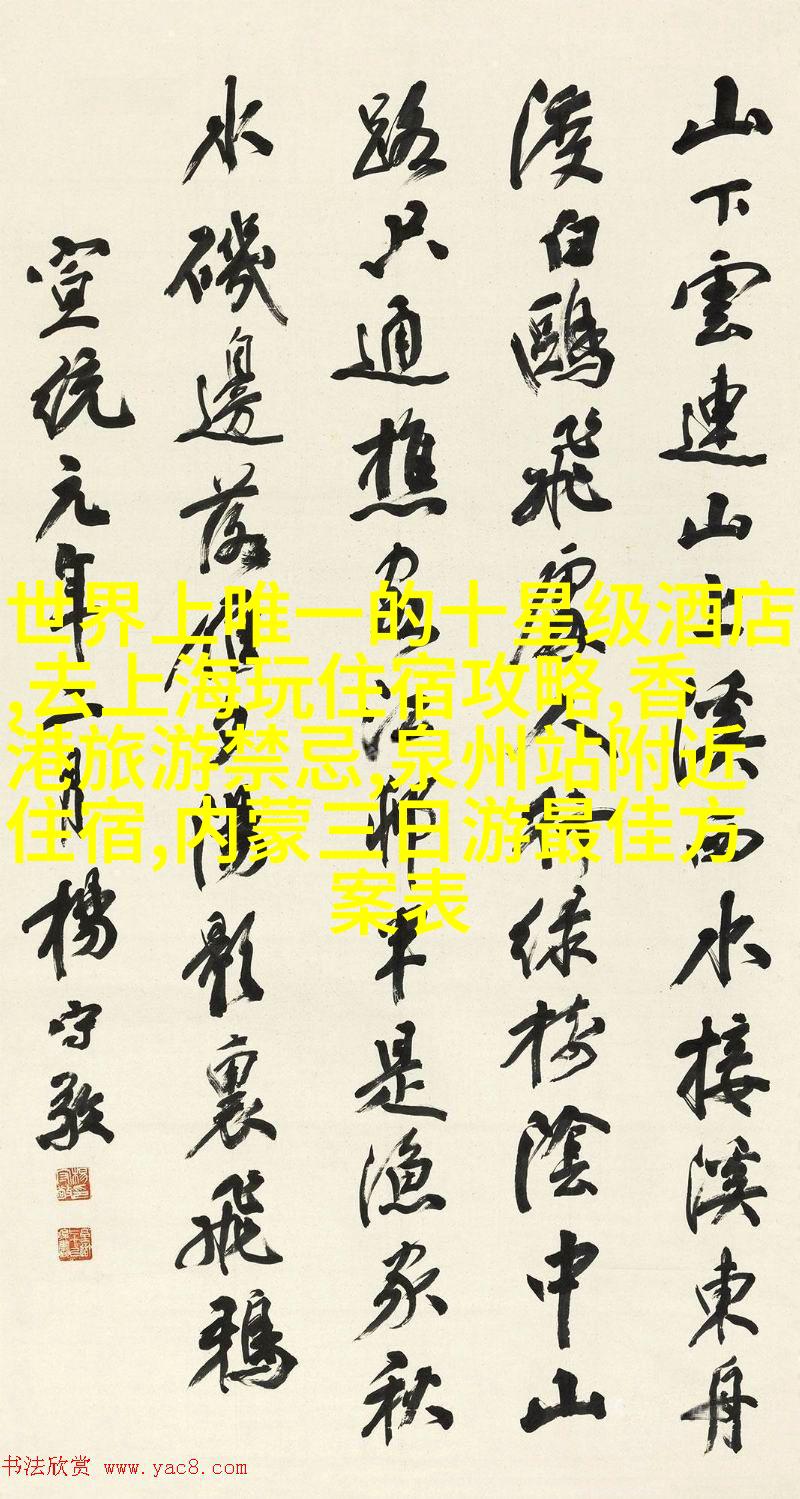 山下雲連山上溪西水接溪東舟
渡白鷗飛處人行綠樹陰中山
路只通樵客江村半是漁家秋
水磯邊落雁夕陽影裏飛鴉
宣統元年月楊守敬
世界上唯一的十星级酒店
,去上海玩住宿攻略,香
港旅游禁忌,泉州站附近
住宿,内蒙三日游最佳方
案表
书法欣赏 www.yac8.com